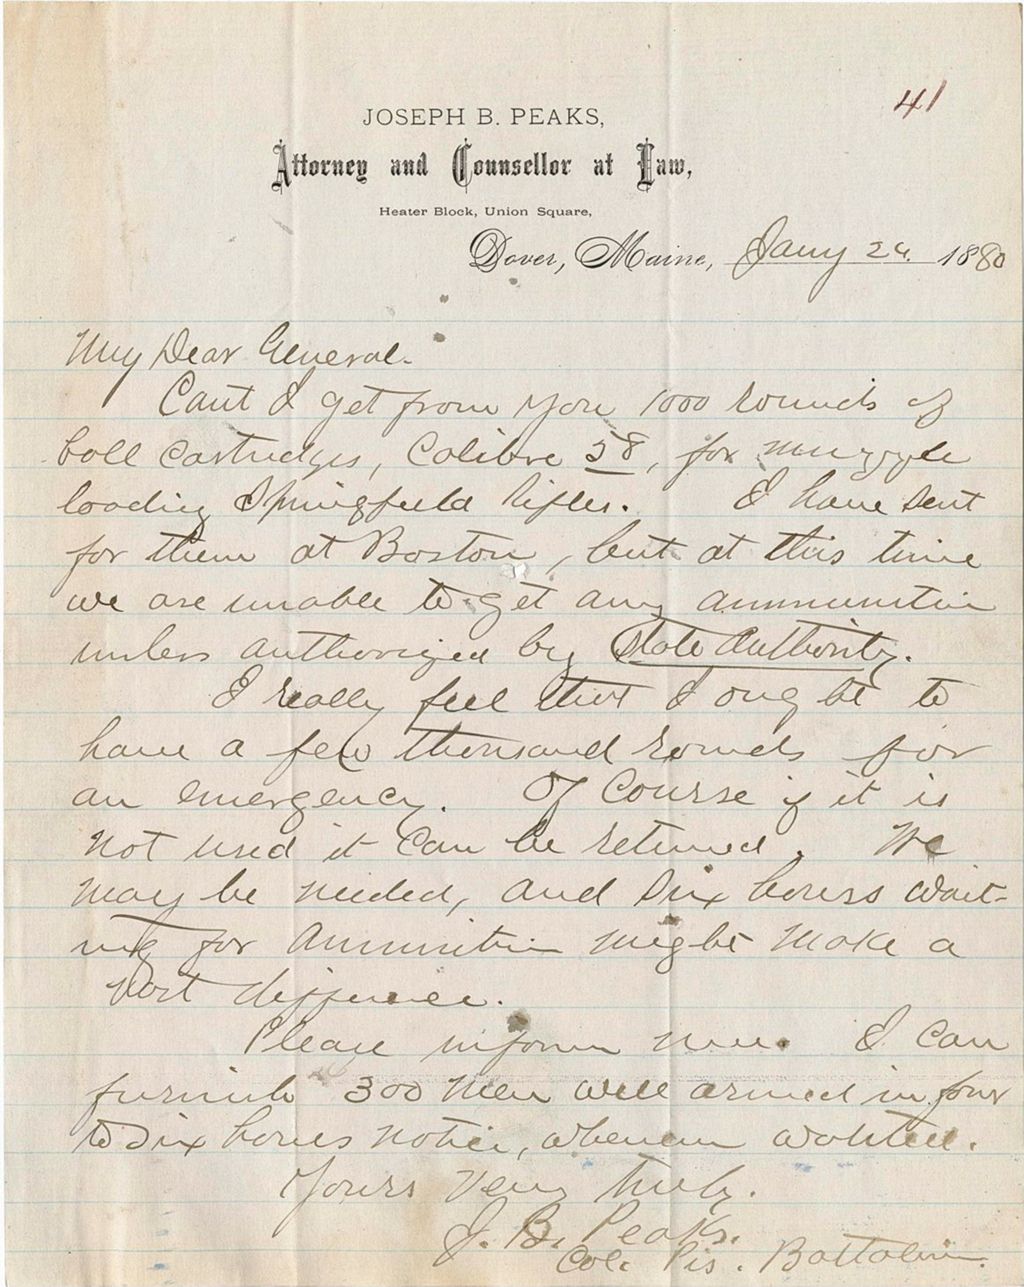 41
JOSEPH B. PEAKS,
Attorney and Counsellor at Law,
Heater Block, Union Square,
Dover, Maine, Jany 24. 1880
My Dear General.
Cant I get from you 1000 rounds of
ball cartridges, Calibre 58, for muzzle
loading Springfield rifles. I have sent
for them at Boston, but at this time
we are unable to get any ammunition
unless authorized by State Authority.
I really feel that I ought to
have a few thousand rounds for
an emergency. Of course if it is
not used it can be returned. We
may be needed, and six hours wait-
ing for ammunition might make a
vast difference.
Please inform me. I can
furnish 300 men well armed in four
to six hours notice, whenever wanted.
Yours Very truly.
J. B. Peaks.
Col. Pis. Battalion.